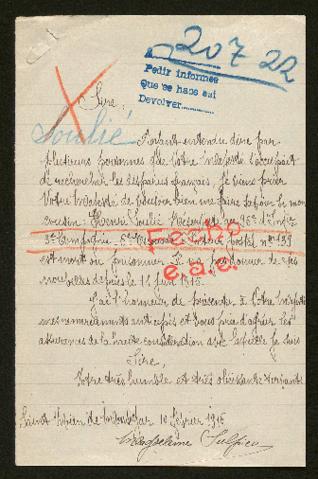 20722
Pedir informes
Que se hace así
Devolver
Sire,
Soulié
Ayant entendu dire par
plusieurs personnes que Votre Majesté s'occupait
de rechercher les disparus français, je viens prier
Votre Majesté de vouloir bien me faire savoir si mon
cousin: Henri Soulié Réserviste au 96e d'Inf
Compagnie secteur postal nº 139
Fecho
est mort ou prisonnier. Il n'a pas donné de ses
nouvelles depuis le 14 juin 1915.
J'ai l'honneur de présenter à Votre Majesté
mes remerciements anticipés et vous prie d'agréer les
assurances de la haute considération avec laquelle je suis
Sire,
Votre très humble et très obéissante servante
Saint 10 février 1916